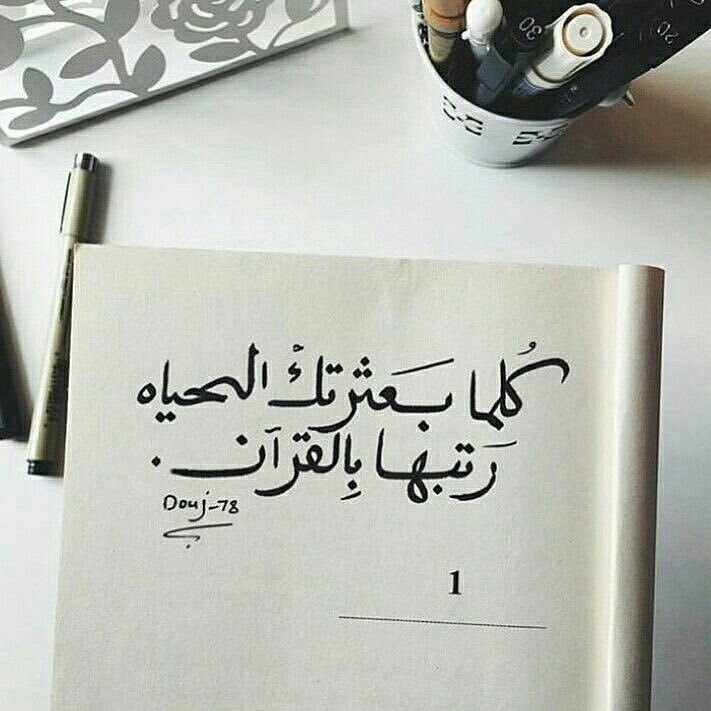 كُلما بَعثرتكْ الحياه
رَتبها بِالقرآن .
Douj-78
1
30
20